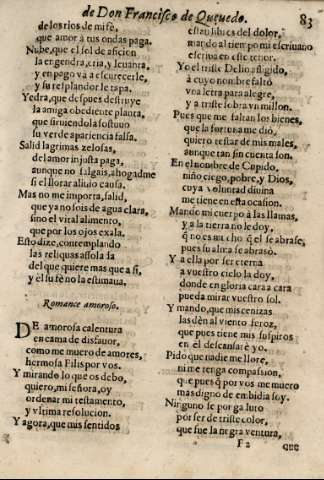 de Don Francisco de Queuedo. 83
de los rios de mi fè,
que amor à tus ondas paga.
Nube, que el sol de aficion
la engendra, cria, y leuanta,
y en pago và a escurecerle,
y su resplandor le tapa.
Yedra, que despues destruye
la amiga obediente planta,
que siruiendola sostuuo
su verde apariencia falsa.
Salid lagrimas zelosas,
del amor injusta paga,
aunque no salgais, ahogadme
si el llorar aliuio causa.
Mas no me importa, salid,
que ya no sois de agua clara,
sino el vital alimento,
que por los ojos exala.
Esto dize, contemplando
las reliquas a solas
del que quiere mas que a si,
y el su fè no la estimaua.
Romance amoroso.
DE amorosa calentura
en cama de disfauor,
como me muero de amores,
hermosa Filis por vos.
Y mirando lo que os debo,
quiero, mi señora, oy
ordenar mi testamento,
y vltima resolucion.
Y agora, que mis sentidos
estan libres del dolor,
mando al tiempo mi escriuano
escriua en este tenor.
Yo el triste Delio afligido,
à cuyo nombre faltò
vna letra para alegre,
y a triste sobra vn millon.
Pues que me faltan los bienes,
que la fortuna me diò,
quiero testar de mis males,
aunque tan sin cuenta son.
En el nombre de Cupido,
niño ciego, pobre, y Dios,
cuya voluntad diuina
me tiene en esta ocasion.
Mando mi cuerpo à las llamas,
y a la tierra no le doy,
q̃ no es mucho q̃ el se abrase,
pues su alma se abrasò.
Y a ella por ser eterna
a vuestro cielo la doy,
donde en gloria cara a cara
pueda mirar vuestro sol.
Y mando, que mis cenizas
las dèn al viento feroz,
que pues tiene mis suspiros
en èl descansarè yo.
Pido que nadie me llore,
ni me tenga compassion,
que pues q̃ por vos me muero
mas digno de embidia soy.
Ninguno se porga luto
por ser de triste color,
que sue la negra ventura,
F 2 que